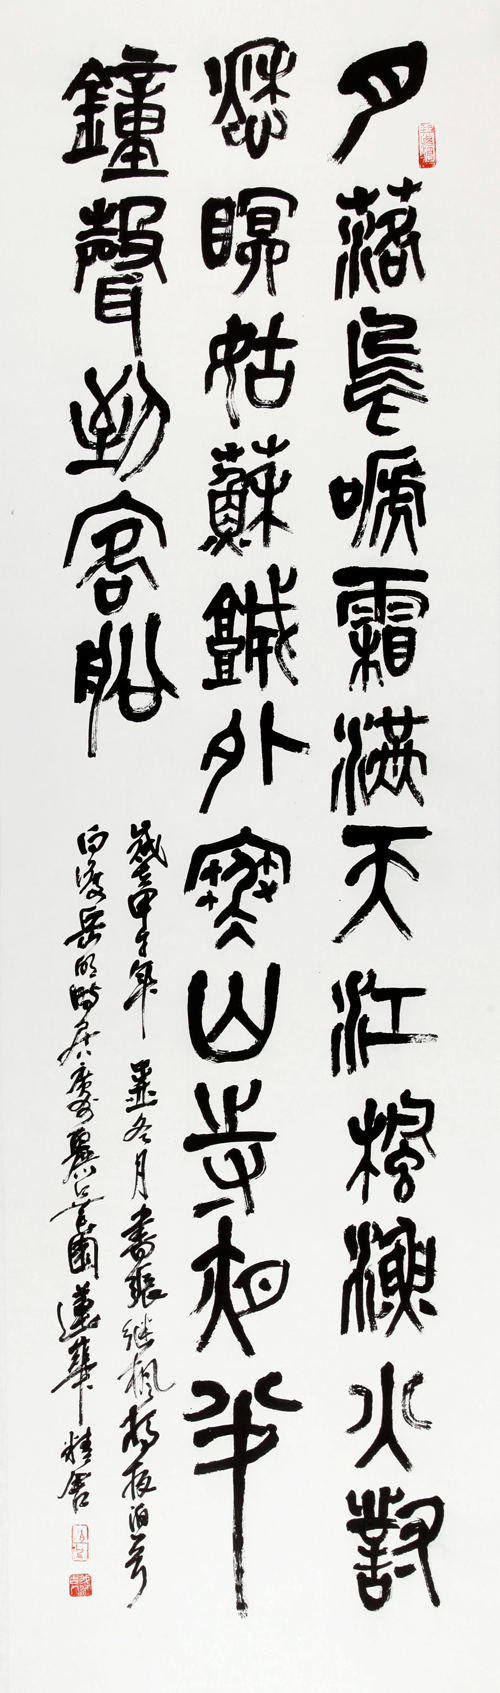 月落烏啼霜滿天江楓漁火對
愁眠姑蘇城外寒山寺夜半
鐘聲到客船
歲在甲午年 孟冬月書張继楓橋夜泊
白渡岳明時居廣州麗園蓮華精舍